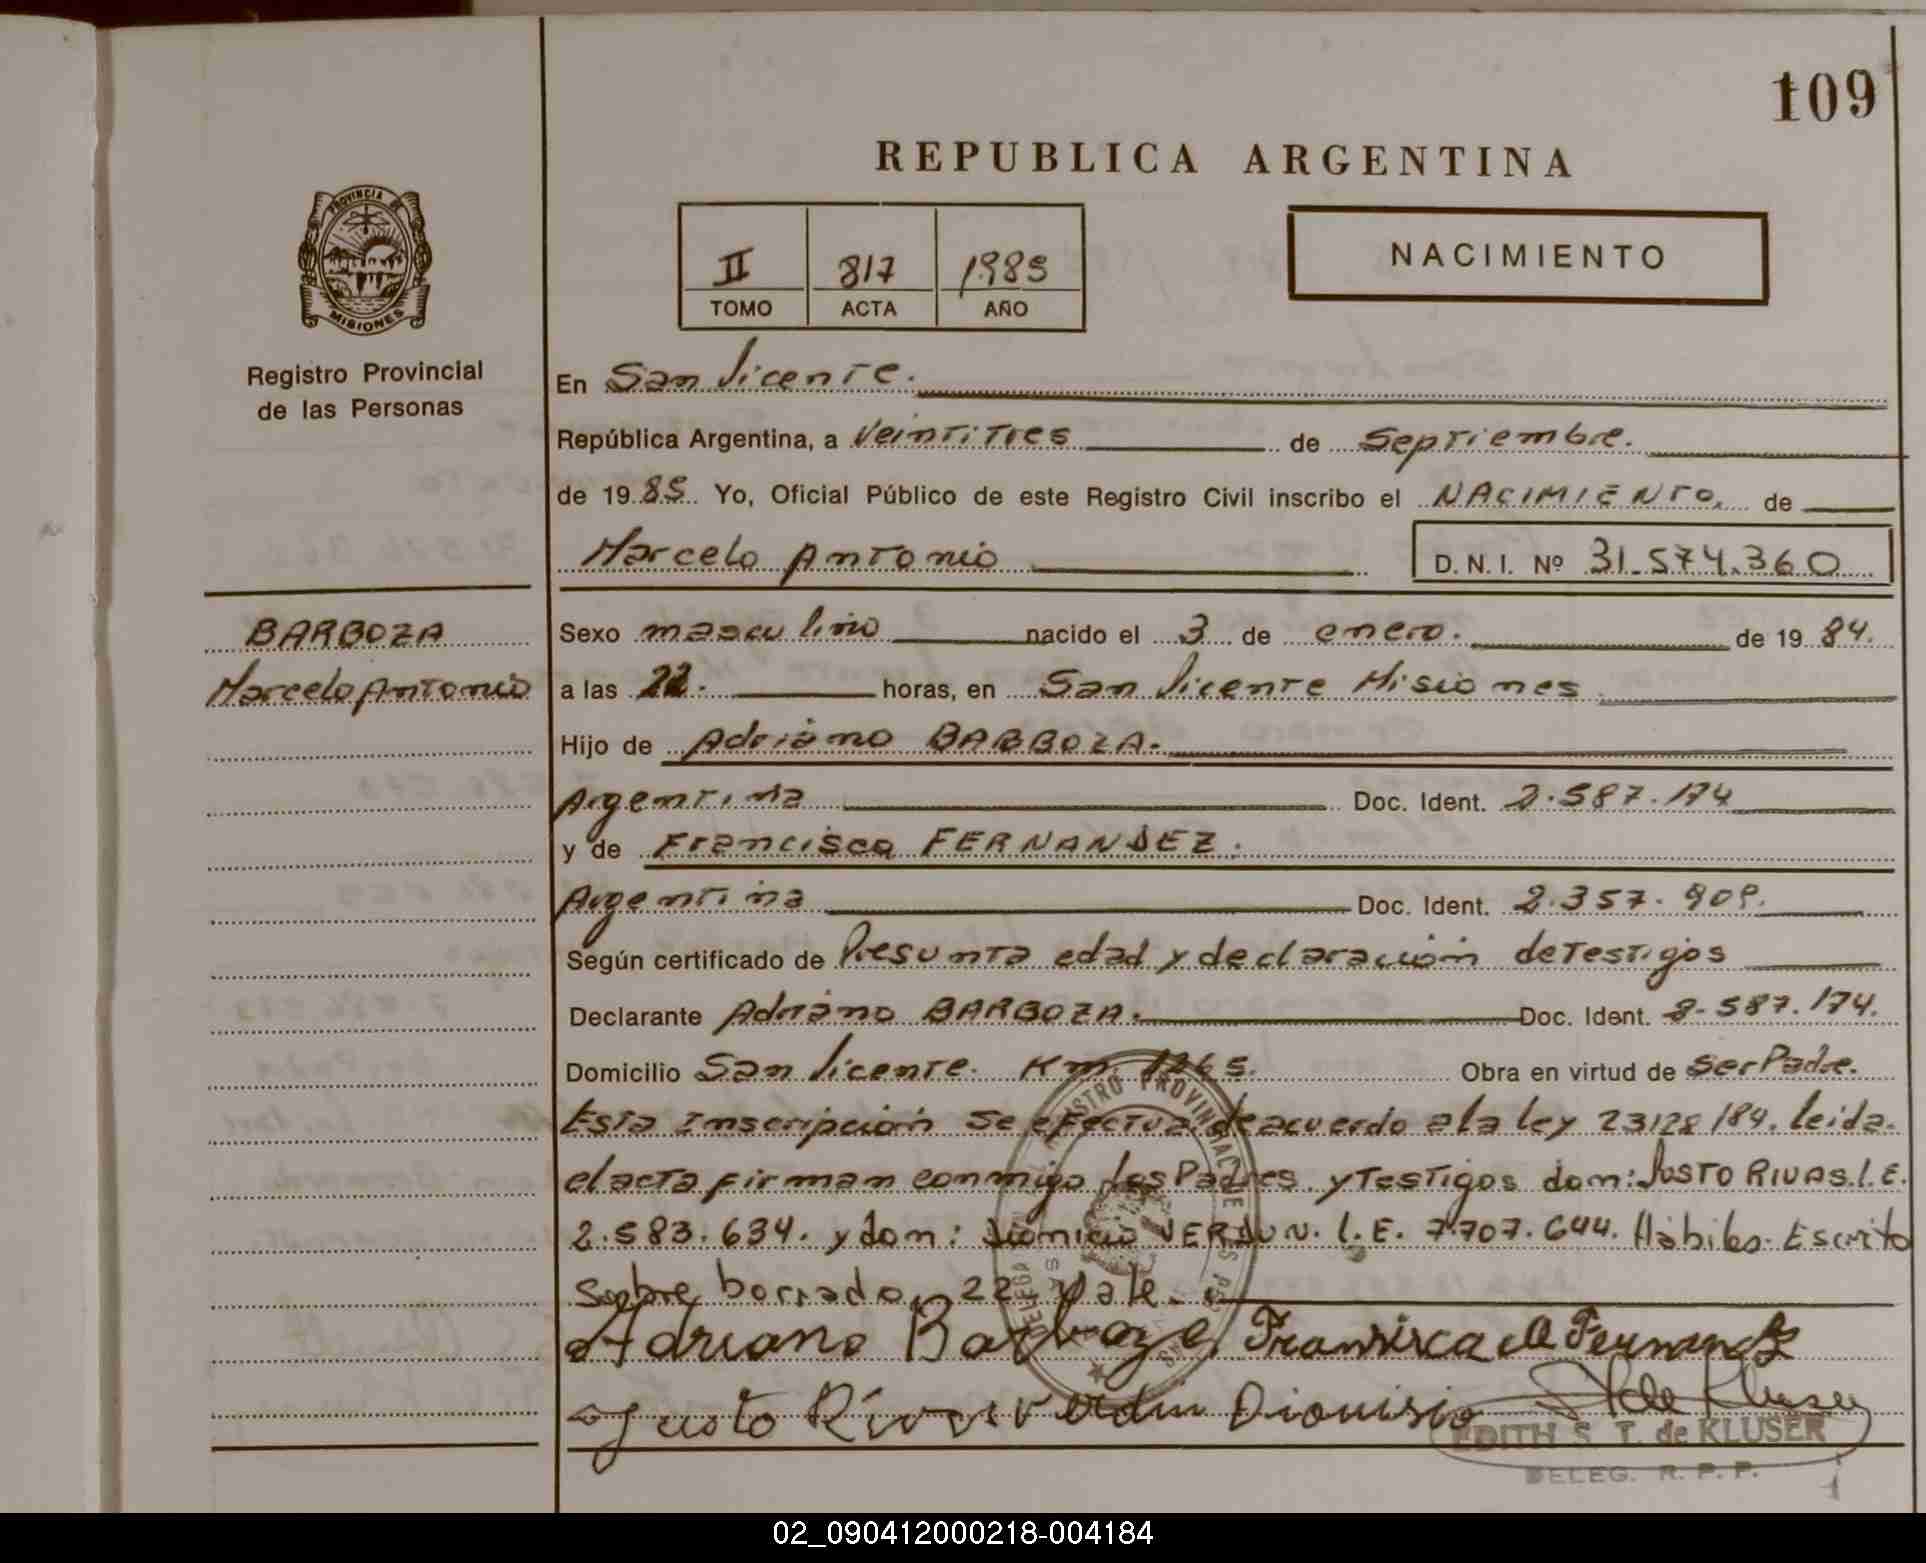 109
REPUBLICA ARGENTINA
PROVINCIA DE
MISIONES
II 817 1985
TOMO ACTA AÑO
NACIMIENTO
Registro Provincial
de las Personas
En San Vicente.
República Argentina, a Veintitres de Septiembre.
de 19 85 Yo, Oficial Público de este Registro Civil inscribo el NACIMIENTO. de
Marcelo Antonio D. N. I. Nº 31.574.360
BARBOZA
Marcelo Antonio
Sexo masculino nacido el 3 de enero. de 19 84.
a las 22. horas, en San Vicente Misiones
Hijo de Adriano BARBOZA.
Argentina Doc. Ident. 2.587.174
y de Francisca FERNANDEZ.
Argentina Doc. Ident. 2.357.909.
Según certificado de Presunta edad y declaración de Testigos
Declarante Adriano BARBOZA. Doc. Ident. 587.174.
Domicilio San Vicente. Km 1265. Obra en virtud de Ser Padre.
Esta Inscripción se efectua de acuerdo a la ley 23128/84. leida
el acta firman conmigo los Padres y Testigos don: Justo RIVAS. L.E.
2.583.634. y don: Dionicio VERDUN. L.E. 7.707.644. Hábiles. Escrito
sobre borrado. 22. Vale.
Adriano Barboza Fransisca Fernandez
Justo Rivas Verdun Dionisio
EDITH S. T. de KLUSER
DELEG. R. P. P.
02_090412000218-004184